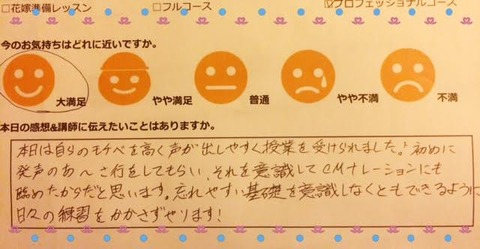 □花嫁準備レッスン □フルコース ☑プロフェッショナルコース
今のお気持ちはどれに近いですか。
大満足 やや満足 普通 やや不満 不満
本日の感想&講師に伝えたいことはありますか。
本日は自分のモチベを高く声が出しやすく授業を受けられました。初めに
発声のあ〜さ行をしてもらい、それを意識してCMナレーションにも
臨めたからだと思います。忘れやすい基礎を意識しなくともできるように
日々の練習をかかさずやります!